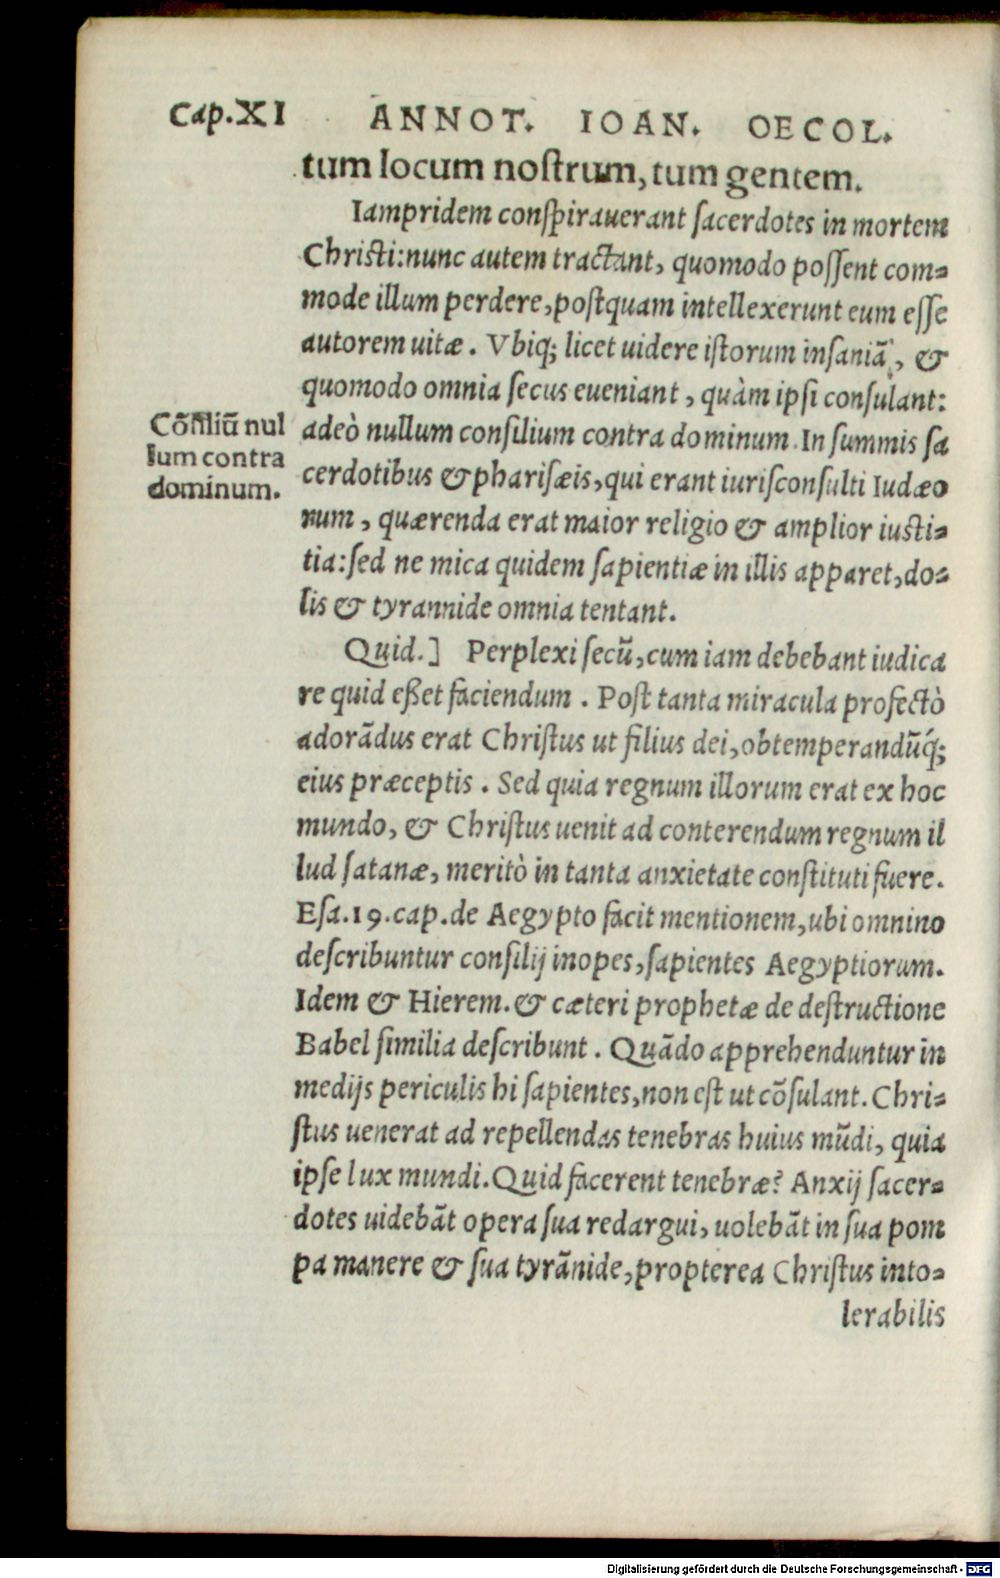 Cap.XI ANNOT. IOAN. OECOL.
tum locum nostrum, tum gentem.
Iampridem conspirauerant sacerdotes in mortem
Christi:nunc autem tractant, quomodo possent com=
mode illum perdere, postquam intellexerunt eum esse
autorem uitæ. Vbiq; licet uidere istorum insaniã, &
quomodo omnia secus eueniant, quàm ipsi consulant:
Cõsiliũ nul
lum contra
dominum.
adeò nullum consilium contra dominum. In summis sa
cerdotibus & pharisæis, qui erant iurisconsulti Iudæo
rum, quærenda erat maior religio & amplior iusti=
tia: sed ne mica quidem sapientiæ in illis apparet, do=
lis & tyrannide omnia tentant.
Quid.] Perplexi secũ, cum iam debebant iudica
re quid eßet faciendum. Post tanta miracula profectò
adorãdus erat Christus ut filius dei, obtemperandũq́;
eius præceptis. Sed quia regnum illorum erat ex hoc
mundo, & Christus uenit ad conterendum regnum il
lud satanæ, meritò in tanta anxietate constituti fuere.
Esa.19.cap.de Aegypto facit mentionem, ubi omnino
describuntur consilij inopes, sapientes Aegyptiorum.
Idem & Hierem. & cæteri prophetæ de destructione
Babel similia describunt. Quãdo apprehenduntur in
medijs periculis hi sapientes, non est ut cõsulant. Chri=
stus uenerat ad repellendas tenebras huius mũdi, quia
ipse lux mundi. Quid facerent tenebræ? Anxij sacer=
dotes uidebãt opera sua redargui, uolebãt in sua pom
pa manere & sua tyrãnide, propterea Christus into=
lerabilis
Digitalisierung gefördert durch die Deutsche Forschungsgemeinschaft - DFG